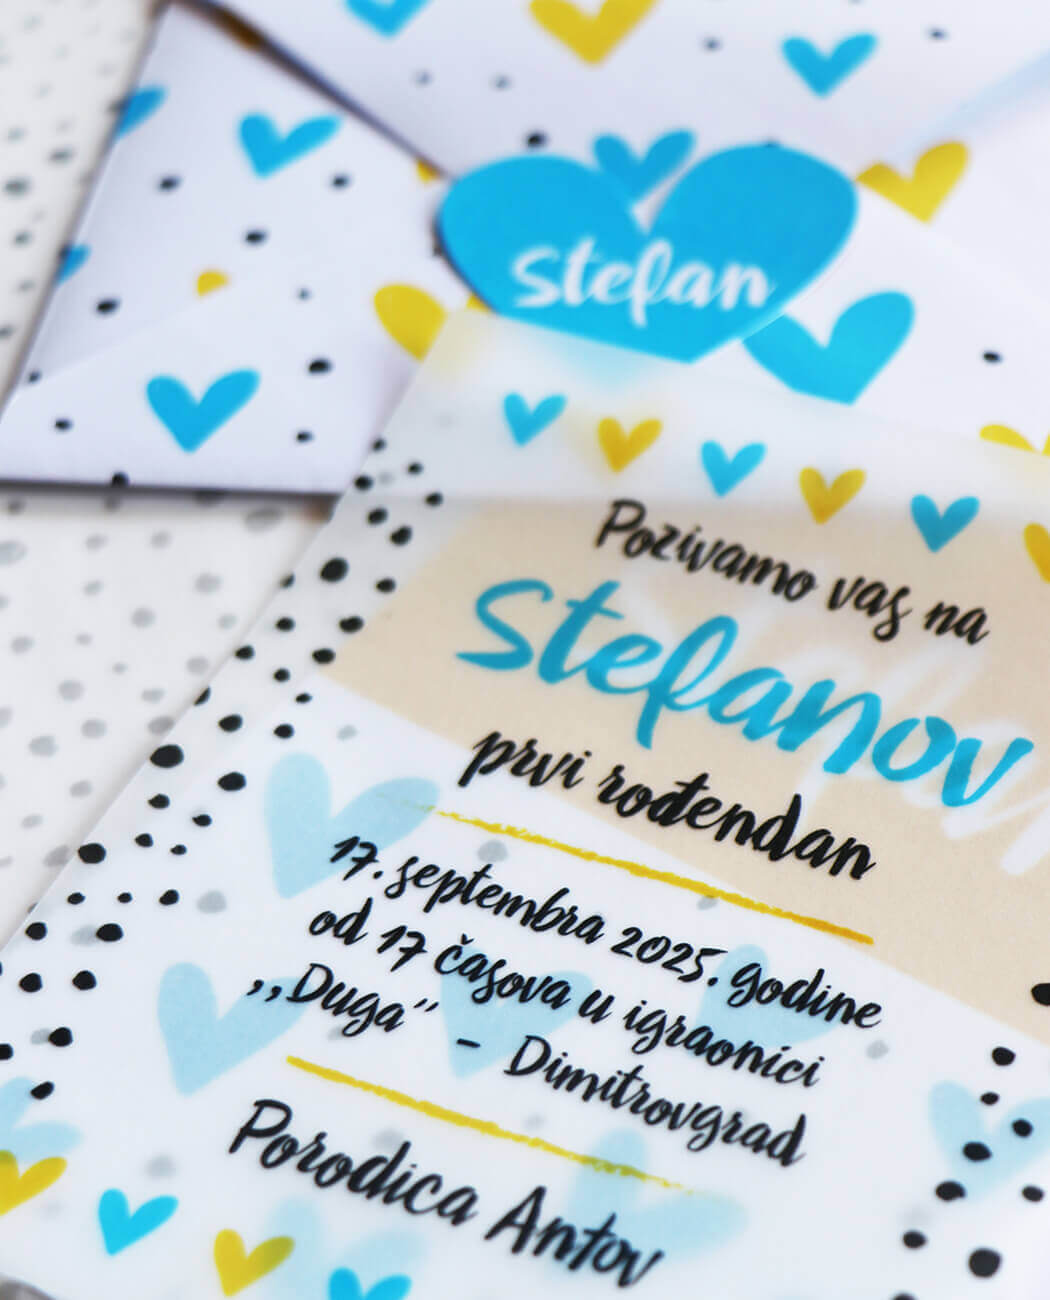 Stefan
Pozivamo vas na
Stefanov
prvi rođendan
17. septembra 2025. godine
od 17 časova u igraonici
,,Duga" - Dimitrovgrad
Porodica Antov